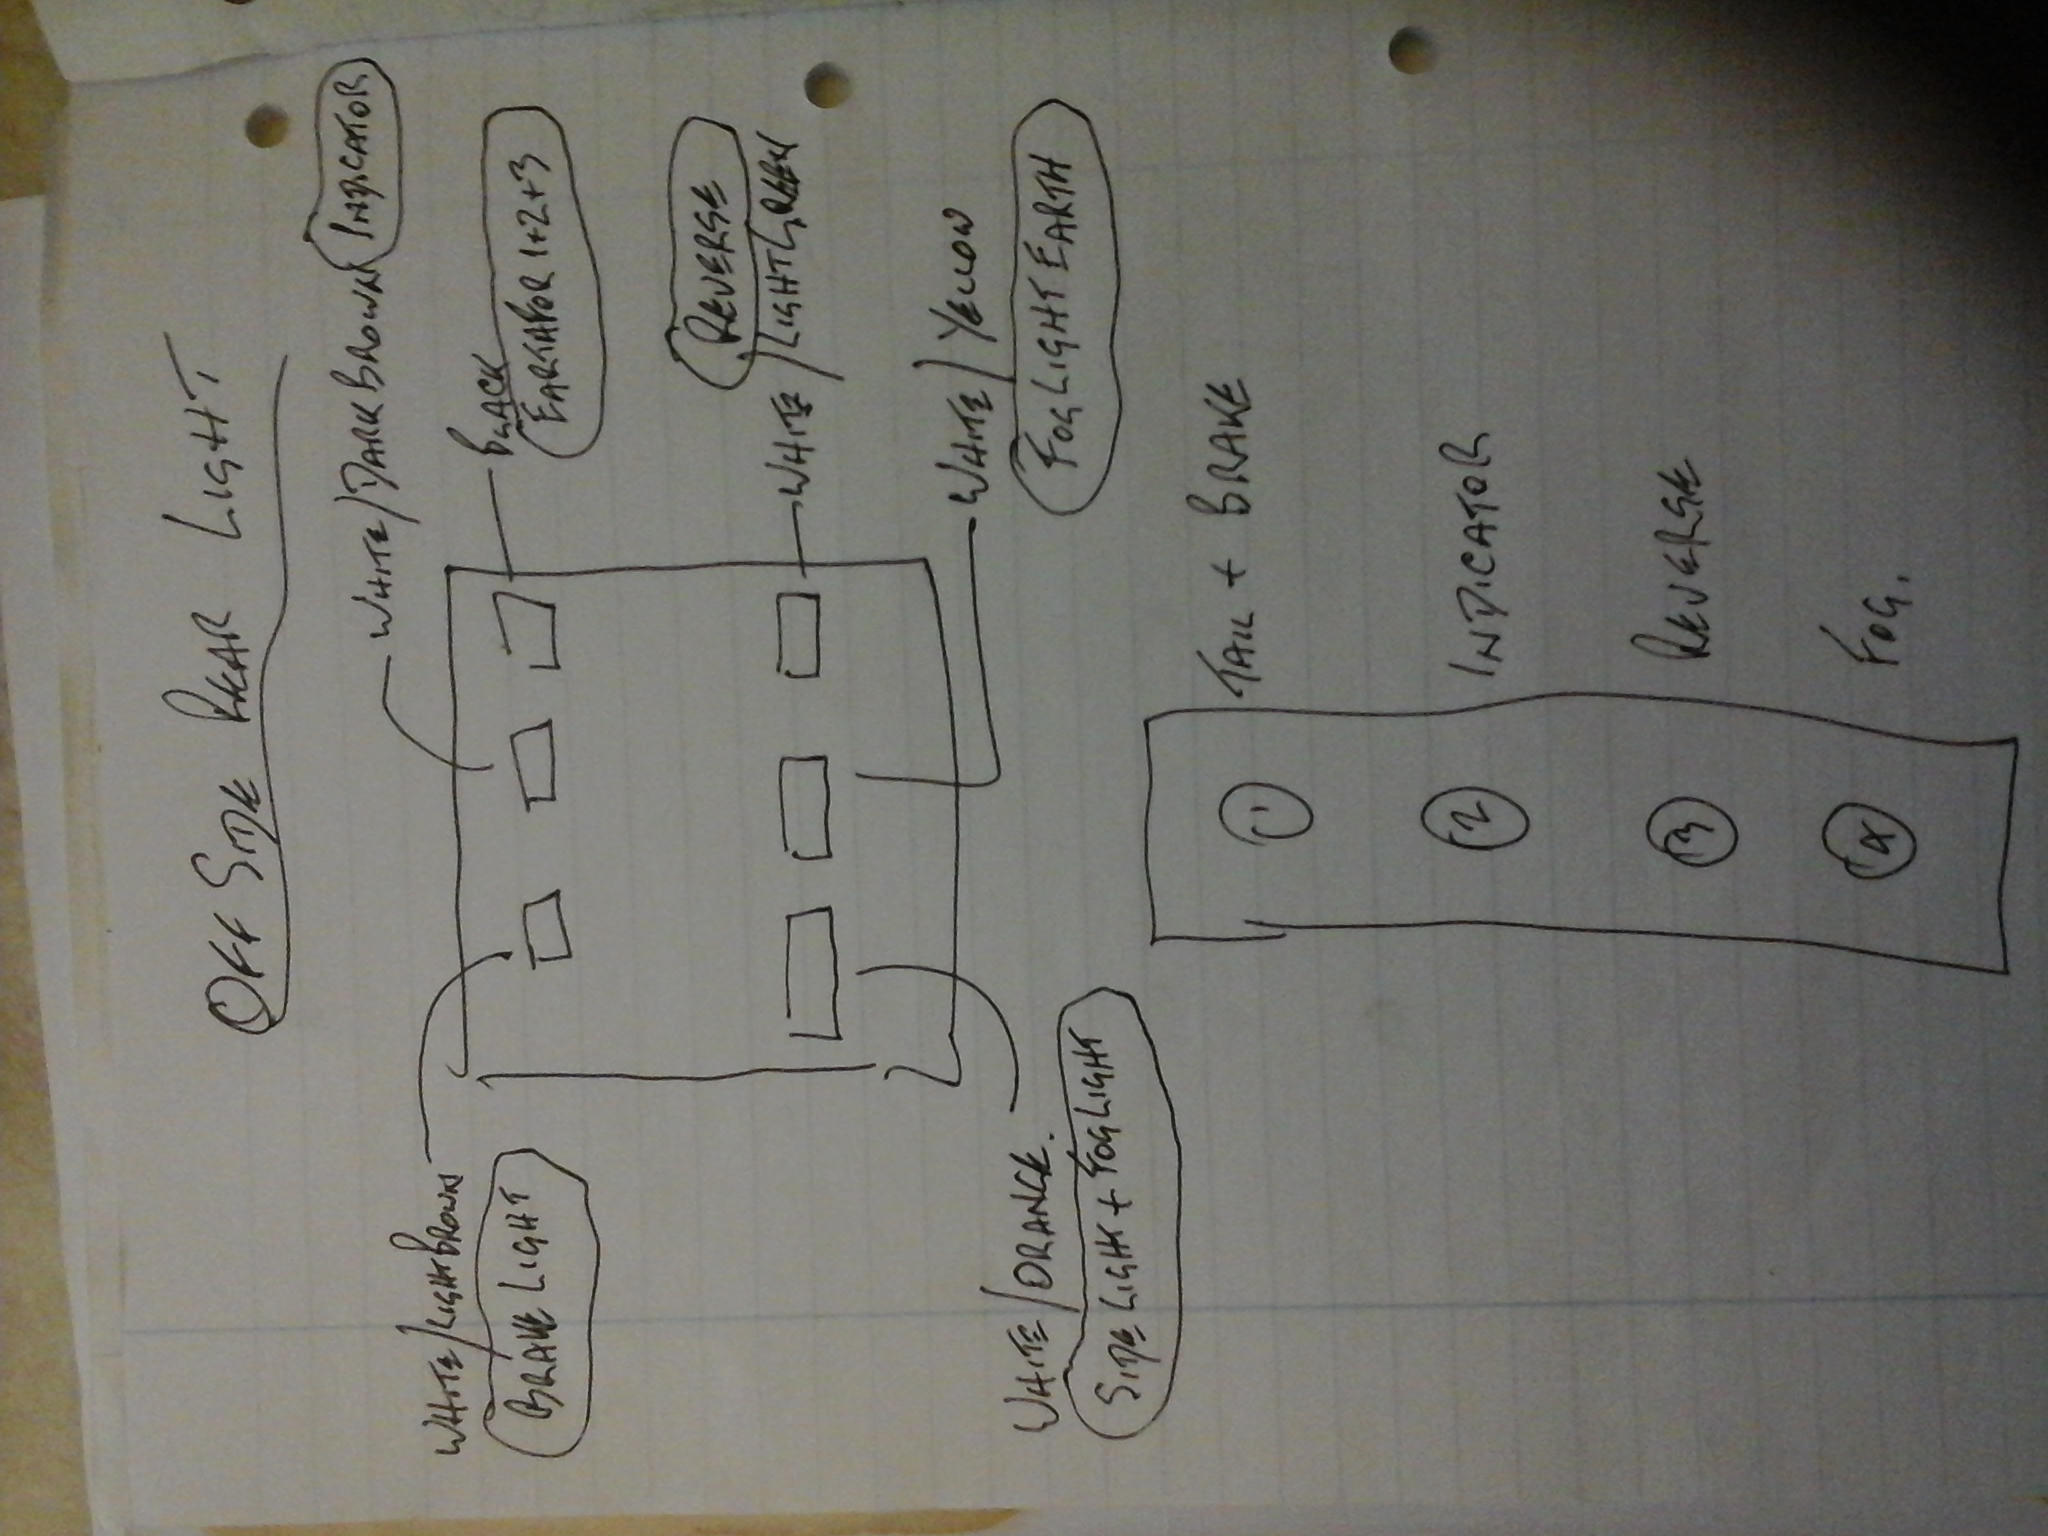 OFF SIDE REAR LIGHT
WHITE/DARK BROWN INDICATOR
WHITE/LIGHT BROWN
BRAKE LIGHT
BLACK
EARTH FOR 1+2+3
REVERSE
WHITE/LIGHT GREEN
WHITE/YELLOW
FOG LIGHT EARTH
WHITE/ORANGE.
SIDE LIGHT + FOG LIGHT
1 TAIL + BRAKE
2 INDICATOR
3 REVERSE
4 FOG.